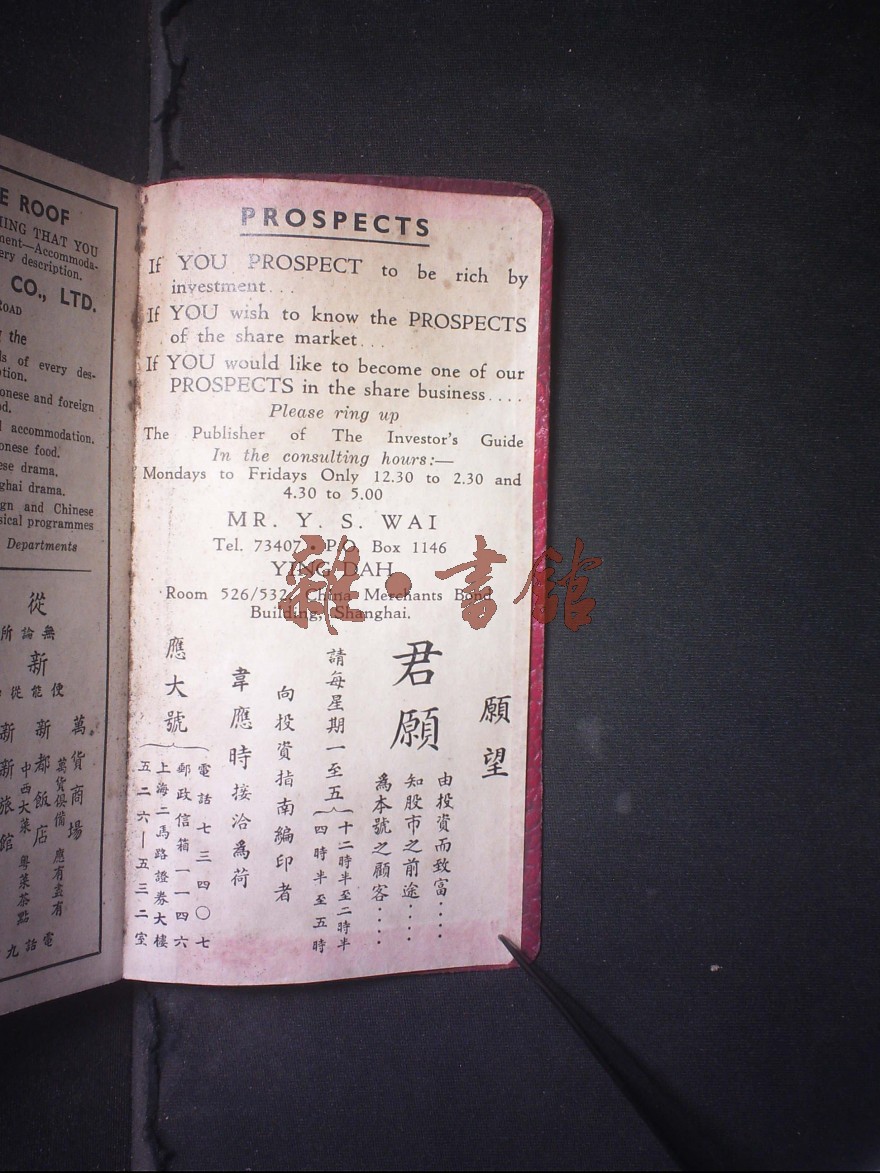 E ROOF
HING THAT YOU
ment—Accommoda-
ery description.
CO., LTD.
ROAD
g the
ls of every des-
ption.
onese and foreign
od.
l accommodation.
onese food.
ese drama.
ghai drama.
gn and Chinese
sical programmes
Departments
從
無論所
新
便能從
萬貨商場
萬貨俱備 應有盡有
新都飯店
中西大菜 粵菜茶點
新新旅館
電話九
PROSPECTS
If YOU PROSPECT to be rich by
investment...
If YOU wish to know the PROSPECTS
of the share market...
If YOU would like to become one of our
PROSPECTS in the share business....
Please ring up
The Publisher of The Investor's Guide
In the consulting hours:—
Mondays to Fridays Only 12.30 to 2.30 and
4.30 to 5.00
MR. Y. S. WAI
Tel. 73407 • P.O. Box 1146
YING DAH
Room 526/532, China Merchants Bond
Building, Shanghai.
願望
君願
由投資而致富....
知股市之前途....
為本號之顧客....
請每星期一至五
十二時半至二時半
四時半至五時
向投資指南編印者
韋應時接洽為荷
應大號
電話七三四〇七
郵政信箱一一四六
上海二馬路證券大樓
五二六—五三二室
雜·書館